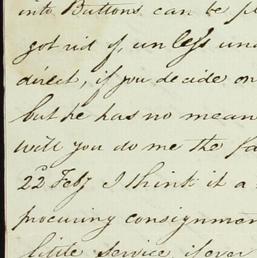 into Buttons can be p
got rid of, unless un
direct, if you decide on
but he has no mean
will you do me the fa
22d Feby I think it a
procuring consignmen
little service if ever